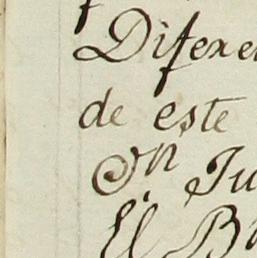 Diferen
de este
Dn Ju
El B